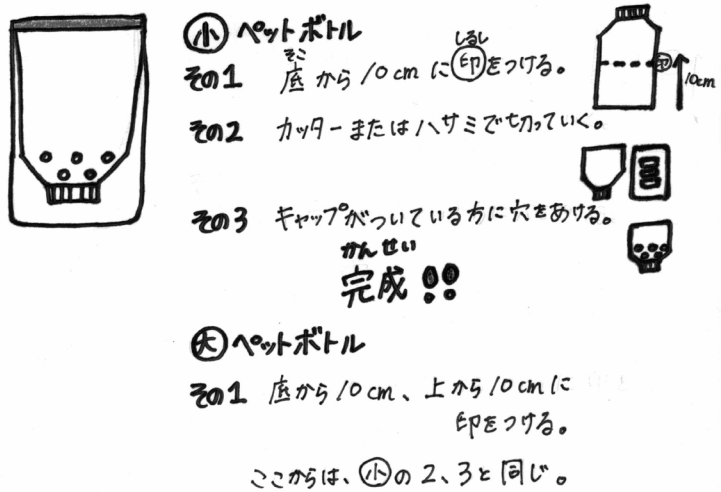 小 ペットボトル
そこ しるし
その1 底から10cmに印をつける。
印
10cm
その2 カッターまたはハサミで切っていく。
その3 キャップがついている方に穴をあける。
かんせい
完成!!
大 ペットボトル
その1 底から10cm、上から10cmに
印をつける。
ここからは、小の2、3と同じ。